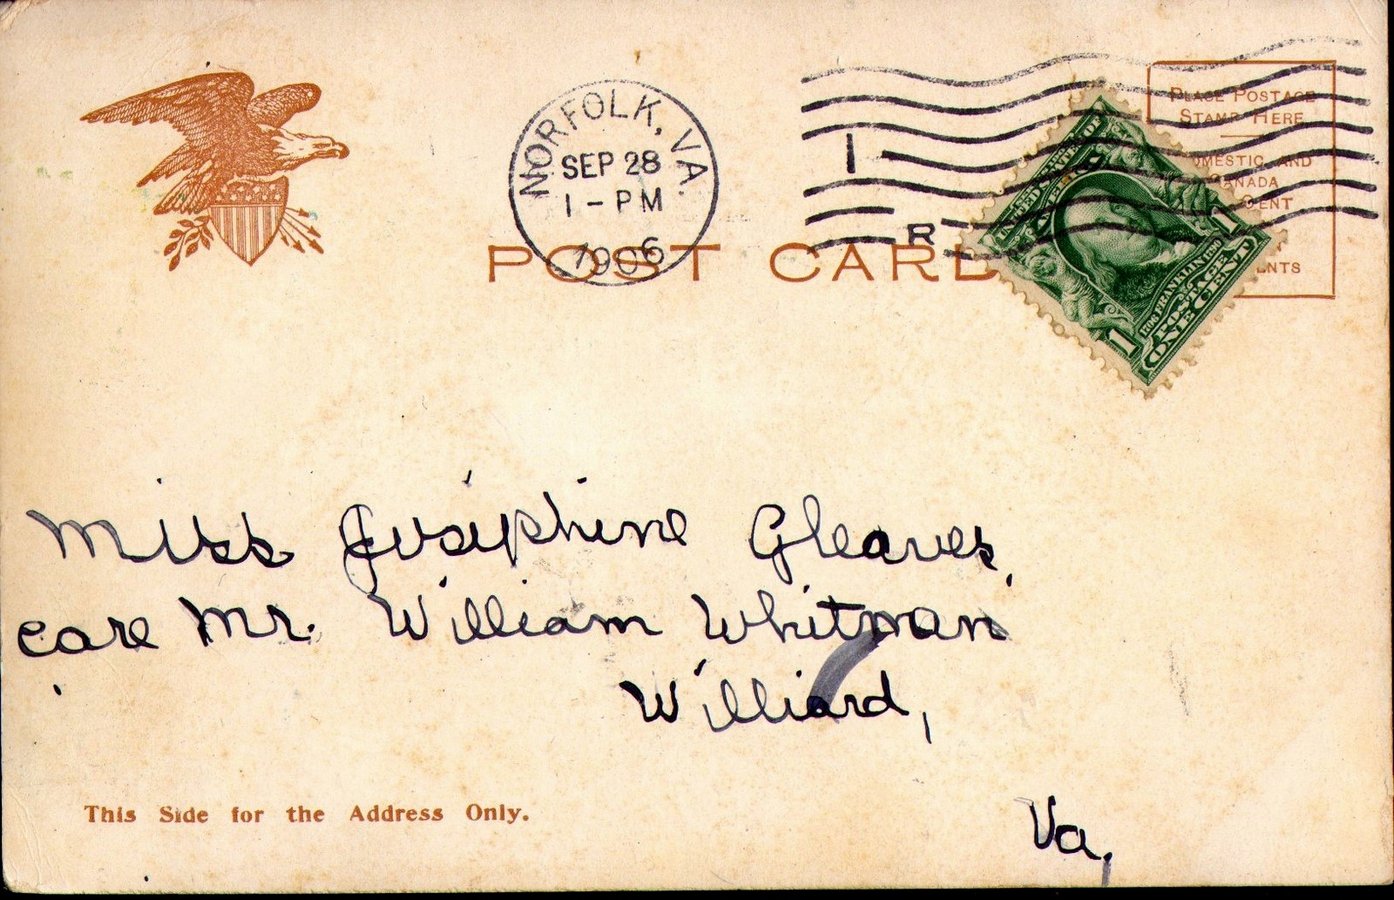 NORFOLK, VA.
SEP 28
1 - PM
1906
1
R
POST CARD
PLACE POSTAGE
STAMP HERE
DOMESTIC AND
CANADA
CENT
UNITED STATES OF
FRANKLIN
POSTAGE
ONE CENT
1
1
Miss Josephine Gleaves,
care Mr. William Whitman
Williard,
Va,
This Side for the Address Only.